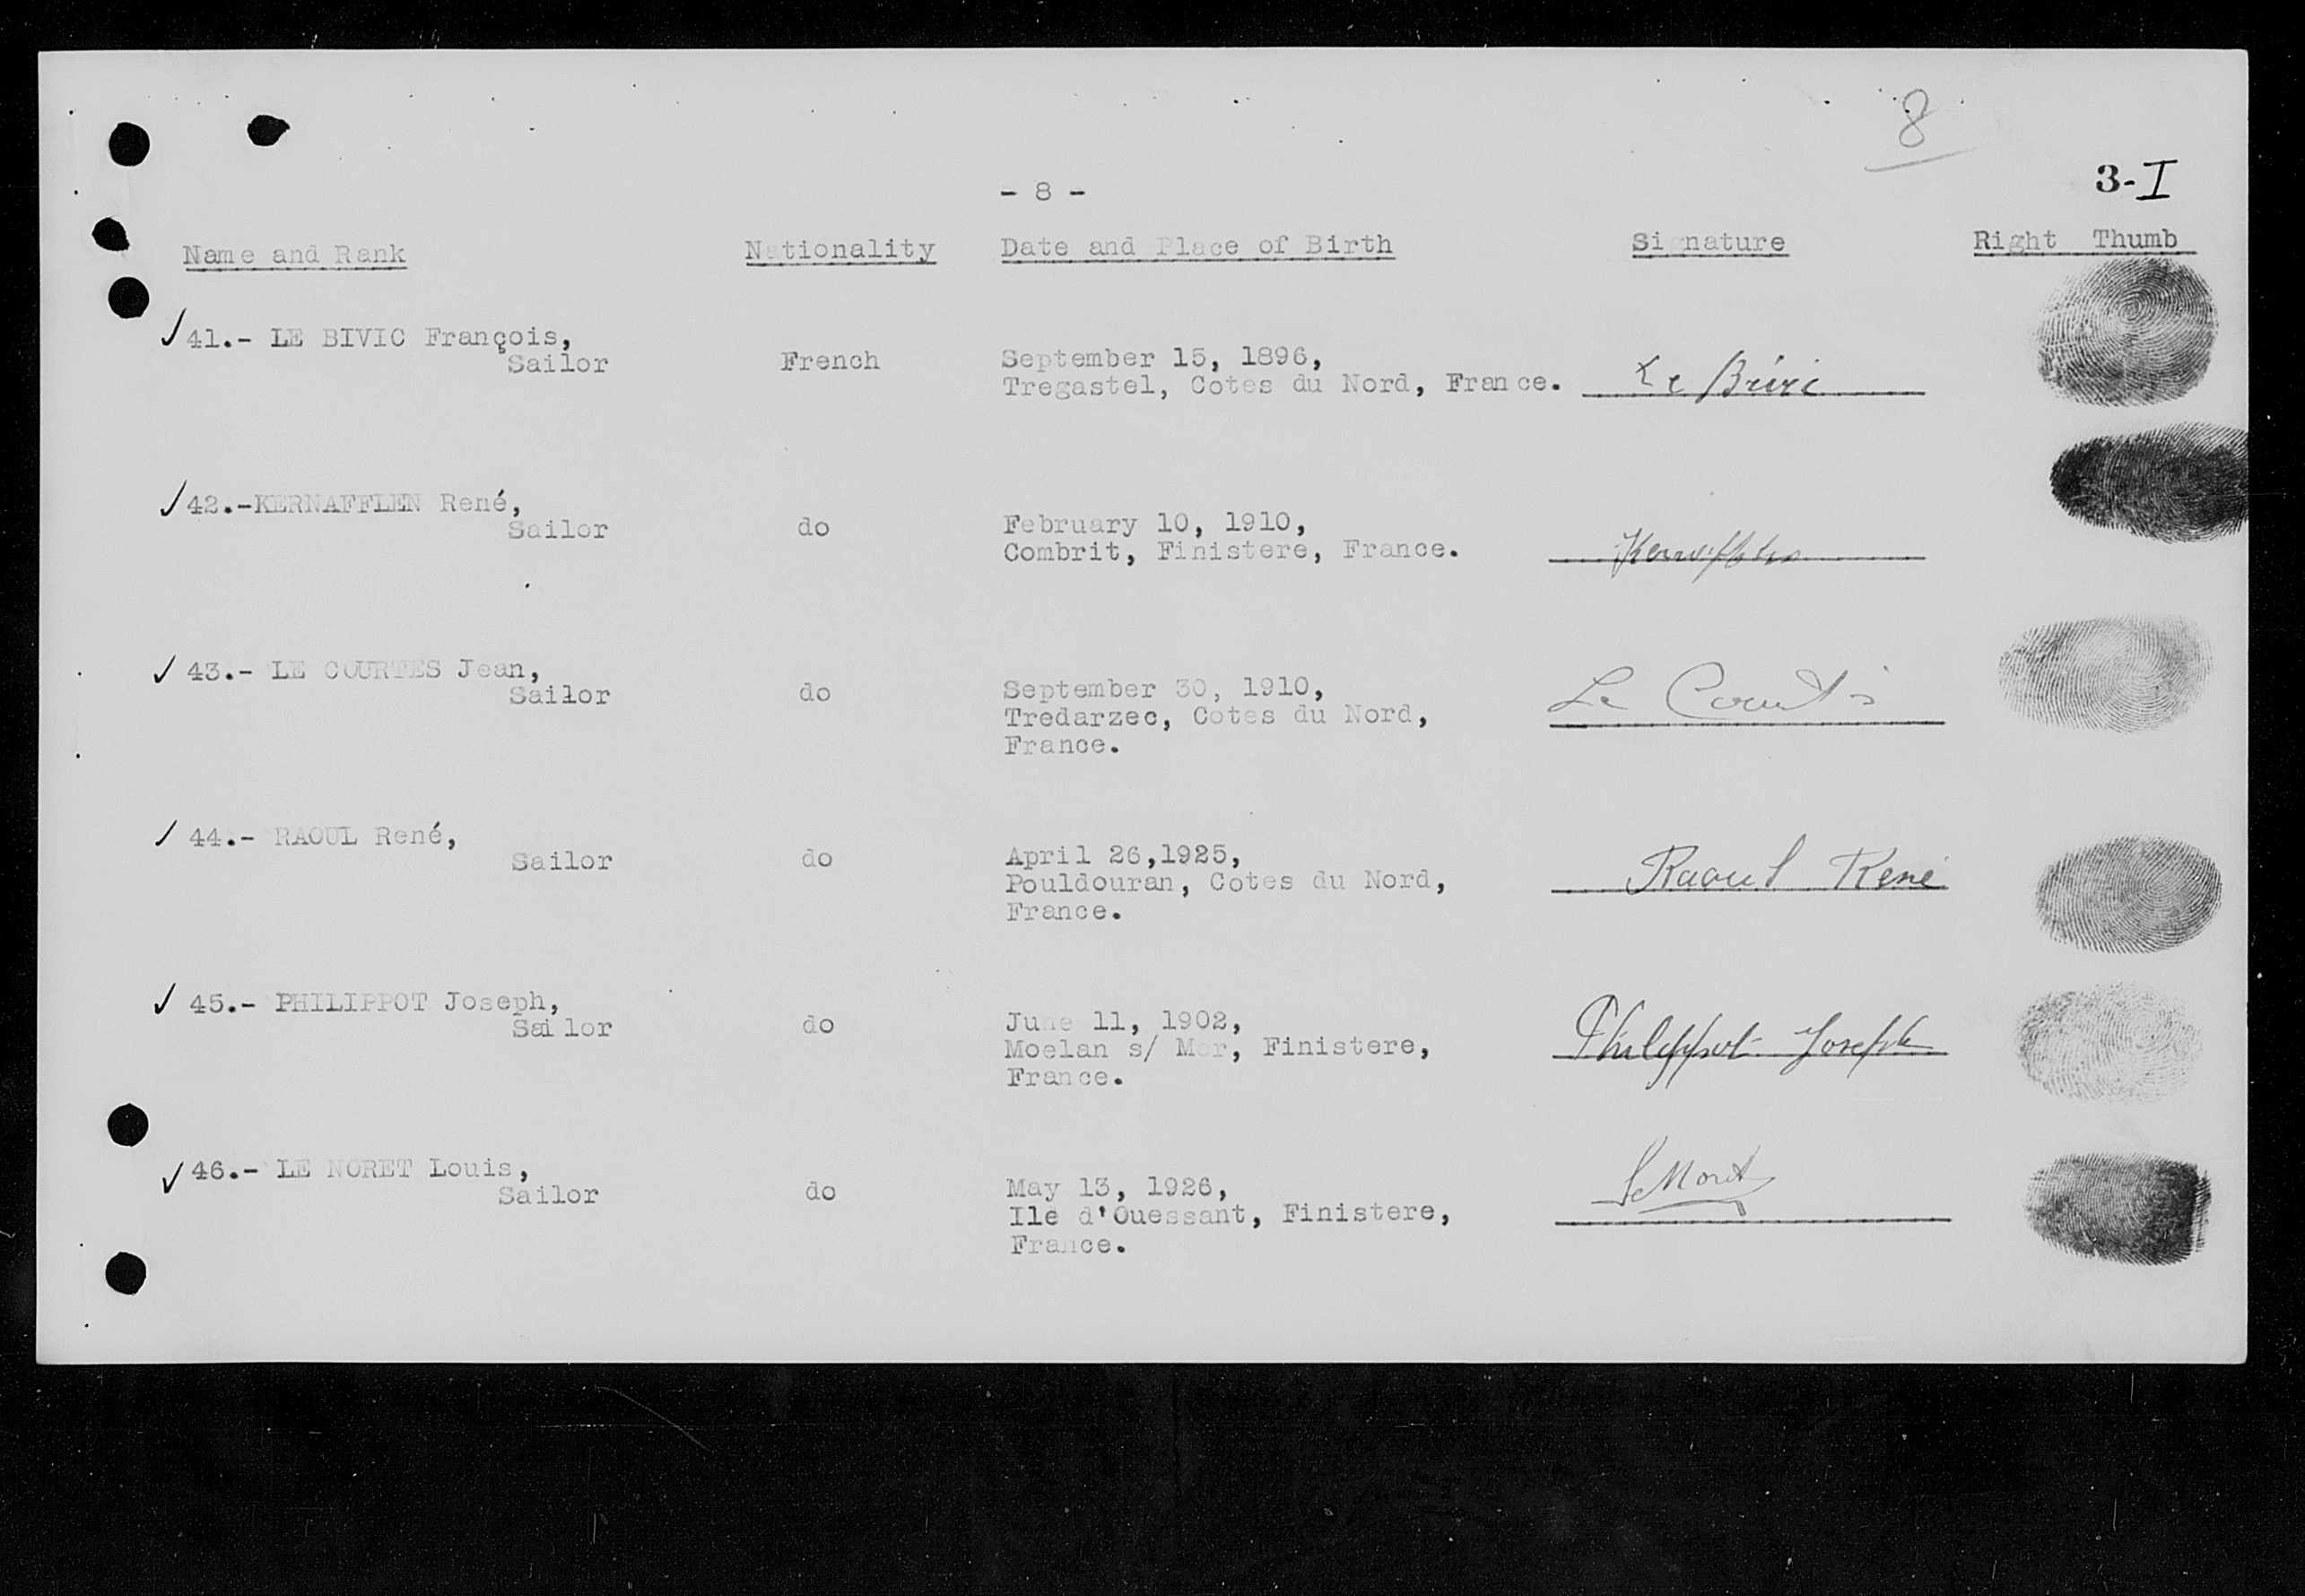 8
3-I
- 8 -
Name and Rank Nationality Date and Place of Birth Signature Right Thumb
✓ 41.- LE BIVIC François,
Sailor French September 15, 1896,
Tregastel, Cotes du Nord, France. Le Bivic
✓ 42.-KERNAFFLEN René,
Sailor do February 10, 1910,
Combrit, Finistere, France. Kernafflen
✓ 43.- LE COURTES Jean,
Sailor do September 30, 1910,
Tredarzec, Cotes du Nord, Le Courtès
France.
✓ 44.- RAOUL René,
Sailor do April 26,1925,
Pouldouran, Cotes du Nord, Raoul René
France.
✓ 45.- PHILIPPOT Joseph,
Sailor do June 11, 1902,
Moelan s/ Mer, Finistere, Philippot Joseph
France.
✓ 46.- LE NORET Louis,
Sailor do May 13, 1926,
Ile d'Ouessant, Finistere,
France.